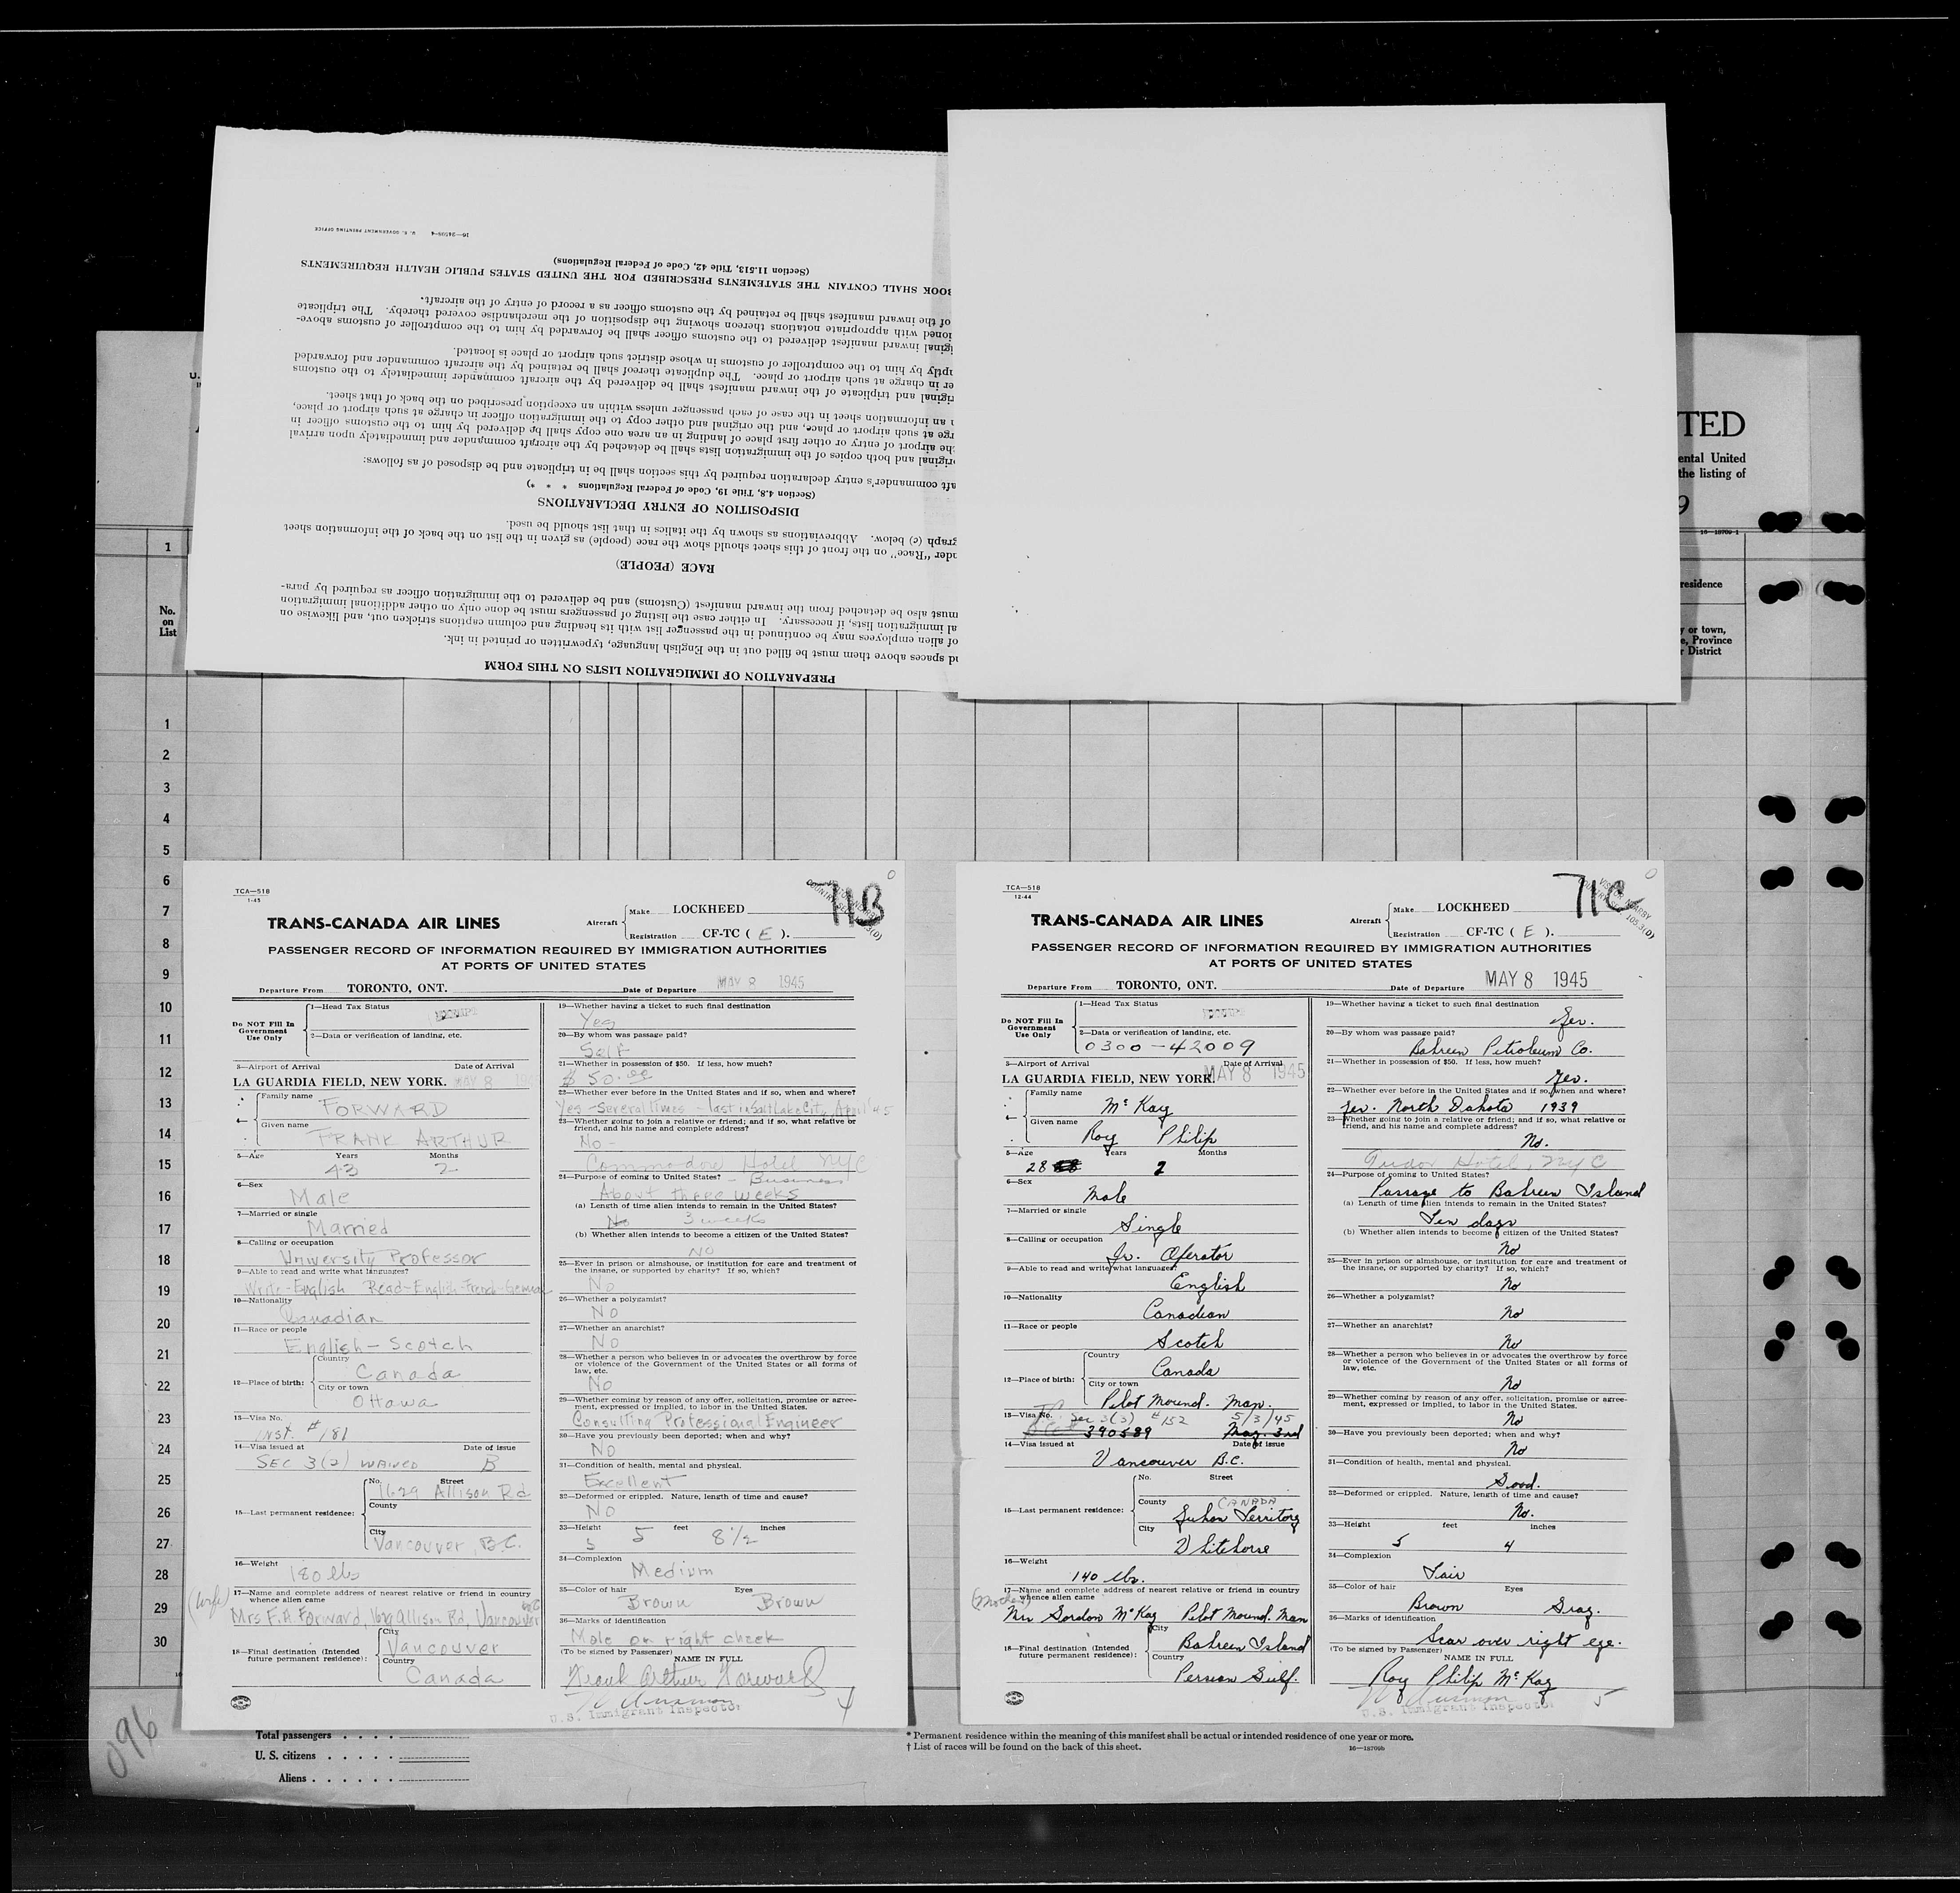 16—24509-4 U. S. GOVERNMENT PRINTING OFFICE
(Section 11.513, Title 42, Code of Federal Regulations)
BOOK SHALL CONTAIN THE STATEMENTS PRESCRIBED FOR THE UNITED STATES PUBLIC HEALTH REQUIREMENTS
of the inward manifest shall be retained by the customs officer as a record of entry of the aircraft.
ioned with appropriate notations thereon showing the disposition of the merchandise covered thereby. The triplicate
iginal inward manifest delivered to the customs officer shall be forwarded by him to the comptroller of customs above-
ptly by him to the comptroller of customs in whose district such airport or place is located.
er in charge at such airport or place. The duplicate thereof shall be retained by the aircraft commander and forwarded
riginal and triplicate of the inward manifest shall be delivered by the aircraft commander immediately to the customs
n an information sheet in the case of each passenger unless within an exception prescribed on the back of that sheet.
rge at such airport or place, and the original and other copy to the immigration officer in charge at such airport or place,
he airport of entry or other first place of landing in an area one copy shall be delivered by him to the customs officer in
original and both copies of the immigration lists shall be detached by the aircraft commander and immediately upon arrival
aft commander's entry declaration required by this section shall be in triplicate and be disposed of as follows:
(Section 4.8, Title 19, Code of Federal Regulations * * *)
DISPOSITION OF ENTRY DECLARATIONS
graph (c) below. Abbreviations as shown by the italics in that list should be used.
nder "Race" on the front of this sheet should show the race (people) as given in the list on the back of the information sheet
RACE (PEOPLE)
must also be detached from the inward manifest (Customs) and be delivered to the immigration officer as required by para-
al immigration lists, if necessary. In either case the listing of passengers must be done only on other additional immigration
of alien employees may be continued in the passenger list with its heading and column captions stricken out, and likewise on
nd spaces above them must be filled out in the English language, typewritten or printed in ink.
PREPARATION OF IMMIGRATION LISTS ON THIS FORM
U.
TED
ental United
the listing of
9
16—18709-1
residence
y or town,
e, Province
r District
1
No.
on
List
1
2
3
4
5
6
7
8
9
10
11
12
13
14
15
16
17
18
19
20
21
22
23
24
25
26
27
28
29
30
TCA—518
1-45
71B
TRANS-CANADA AIR LINES
Aircraft
Make LOCKHEED
Registration CF-TC ( E ).
PASSENGER RECORD OF INFORMATION REQUIRED BY IMMIGRATION AUTHORITIES
AT PORTS OF UNITED STATES
Departure From TORONTO, ONT. Date of Departure MAY 8 1945
Do NOT Fill In
Government
Use Only
1—Head Tax Status
2—Data or verification of landing, etc.
3—Airport of Arrival Date of Arrival
LA GUARDIA FIELD, NEW YORK. MAY 8
4—
Family name
FORWARD
Given name
FRANK ARTHUR
5—Age Years Months
43 2
6—Sex
Male
7—Married or single
Married
8—Calling or occupation
University Professor
9—Able to read and write what languages?
Write-English Read-English-French-German
10—Nationality
Canadian
11—Race or people
English-Scotch
12—Place of birth:
Country
Canada
City or town
Ottawa
13—Visa No.
inst. # 181
14—Visa issued at Date of issue
SEC 3(2) WAIVED B
15—Last permanent residence:
No. Street
1629 Allison Rd
County
City
Vancouver, B.C.
16—Weight
180 lbs
(wife)
17—Name and complete address of nearest relative or friend in country
whence alien came
Mrs F.A Forward, 1629 Allison Rd, Vancouver
18—Final destination (Intended
future permanent residence):
City
Vancouver
Country
Canada
19—Whether having a ticket to such final destination
Yes
20—By whom was passage paid?
Self
21—Whether in possession of $50. If less, how much?
$ 50.00
22—Whether ever before in the United States and if so, when and where?
Yes - Several times - last in Salt Lake City, April '45
23—Whether going to join a relative or friend; and if so, what relative or
friend, and his name and complete address?
No -
Commodore Hotel NYC
24—Purpose of coming to United States? - Business
About three weeks
(a) Length of time alien intends to remain in the United States?
No 3 weeks
(b) Whether alien intends to become a citizen of the United States?
NO
25—Ever in prison or almshouse, or institution for care and treatment of
the insane, or supported by charity? If so, which?
No
26—Whether a polygamist?
No
27—Whether an anarchist?
No
28—Whether a person who believes in or advocates the overthrow by force
or violence of the Government of the United States or all forms of
law, etc.
No
29—Whether coming by reason of any offer, solicitation, promise or agree-
ment, expressed or implied, to labor in the United States.
Consulting Professional Engineer
30—Have you previously been deported; when and why?
NO
31—Condition of health, mental and physical.
Excellent
32—Deformed or crippled. Nature, length of time and cause?
NO
33—Height feet inches
5 5 8 1/2
34—Complexion
Medium
35—Color of hair Eyes
Brown Brown
36—Marks of identification
Mole on right cheek
(To be signed by Passenger) NAME IN FULL
Frank Arthur Forward
U.S. Immigrant Inspector
4
TCA—518
12-44
71C
TRANS-CANADA AIR LINES
Aircraft
Make LOCKHEED
Registration CF-TC ( E ).
PASSENGER RECORD OF INFORMATION REQUIRED BY IMMIGRATION AUTHORITIES
AT PORTS OF UNITED STATES
Departure From TORONTO, ONT. Date of Departure MAY 8 1945
Do NOT Fill In
Government
Use Only
1—Head Tax Status
2—Data or verification of landing, etc.
0300-42009
3—Airport of Arrival Date of Arrival
LA GUARDIA FIELD, NEW YORK. MAY 8 1945
4—
Family name
McKay
Given name
Roy Philip
5—Age Years Months
28 2
6—Sex
Male
7—Married or single
Single
8—Calling or occupation
Jr. Operator
9—Able to read and write what languages?
English
10—Nationality
Canadian
11—Race or people
Scotch
12—Place of birth:
Country
Canada
City or town
Pilot Mound. Man.
13—Visa No. Sec 3(3) #152 5/3/45
390589 May. 3rd
14—Visa issued at Date of issue
Vancouver B.C.
15—Last permanent residence:
No. Street
County CANADA
Yukon Territory
City
Whitehorse
16—Weight
140 lbs.
(Mother)
17—Name and complete address of nearest relative or friend in country
whence alien came
Mrs Gordon McKay Pilot Mound. Man
18—Final destination (Intended
future permanent residence):
City
Bahrein Island
Country
Persian Gulf.
19—Whether having a ticket to such final destination
Yes.
20—By whom was passage paid?
Bahrein Petroleum Co.
21—Whether in possession of $50. If less, how much?
Yes.
22—Whether ever before in the United States and if so, when and where?
Yes. North Dakota 1939
23—Whether going to join a relative or friend; and if so, what relative or
friend, and his name and complete address?
No.
Tudor Hotel, NYC
24—Purpose of coming to United States?
Passage to Bahrein Island
(a) Length of time alien intends to remain in the United States?
Ten days
(b) Whether alien intends to become a citizen of the United States?
No
25—Ever in prison or almshouse, or institution for care and treatment of
the insane, or supported by charity? If so, which?
No
26—Whether a polygamist?
No
27—Whether an anarchist?
No
28—Whether a person who believes in or advocates the overthrow by force
or violence of the Government of the United States or all forms of
law, etc.
No
29—Whether coming by reason of any offer, solicitation, promise or agree-
ment, expressed or implied, to labor in the United States.
No
30—Have you previously been deported; when and why?
No
31—Condition of health, mental and physical.
Good.
32—Deformed or crippled. Nature, length of time and cause?
No.
33—Height feet inches
5 4
34—Complexion
Fair
35—Color of hair Eyes
Brown Gray.
36—Marks of identification
Scar over right eye.
(To be signed by Passenger) NAME IN FULL
Roy Philip McKay
U.S. Immigrant Inspector
5
096
Total passengers . . . .
U. S. citizens . . . . .
Aliens . . . . . .
* Permanent residence within the meaning of this manifest shall be actual or intended residence of one year or more.
† List of races will be found on the back of this sheet.
16—18709b